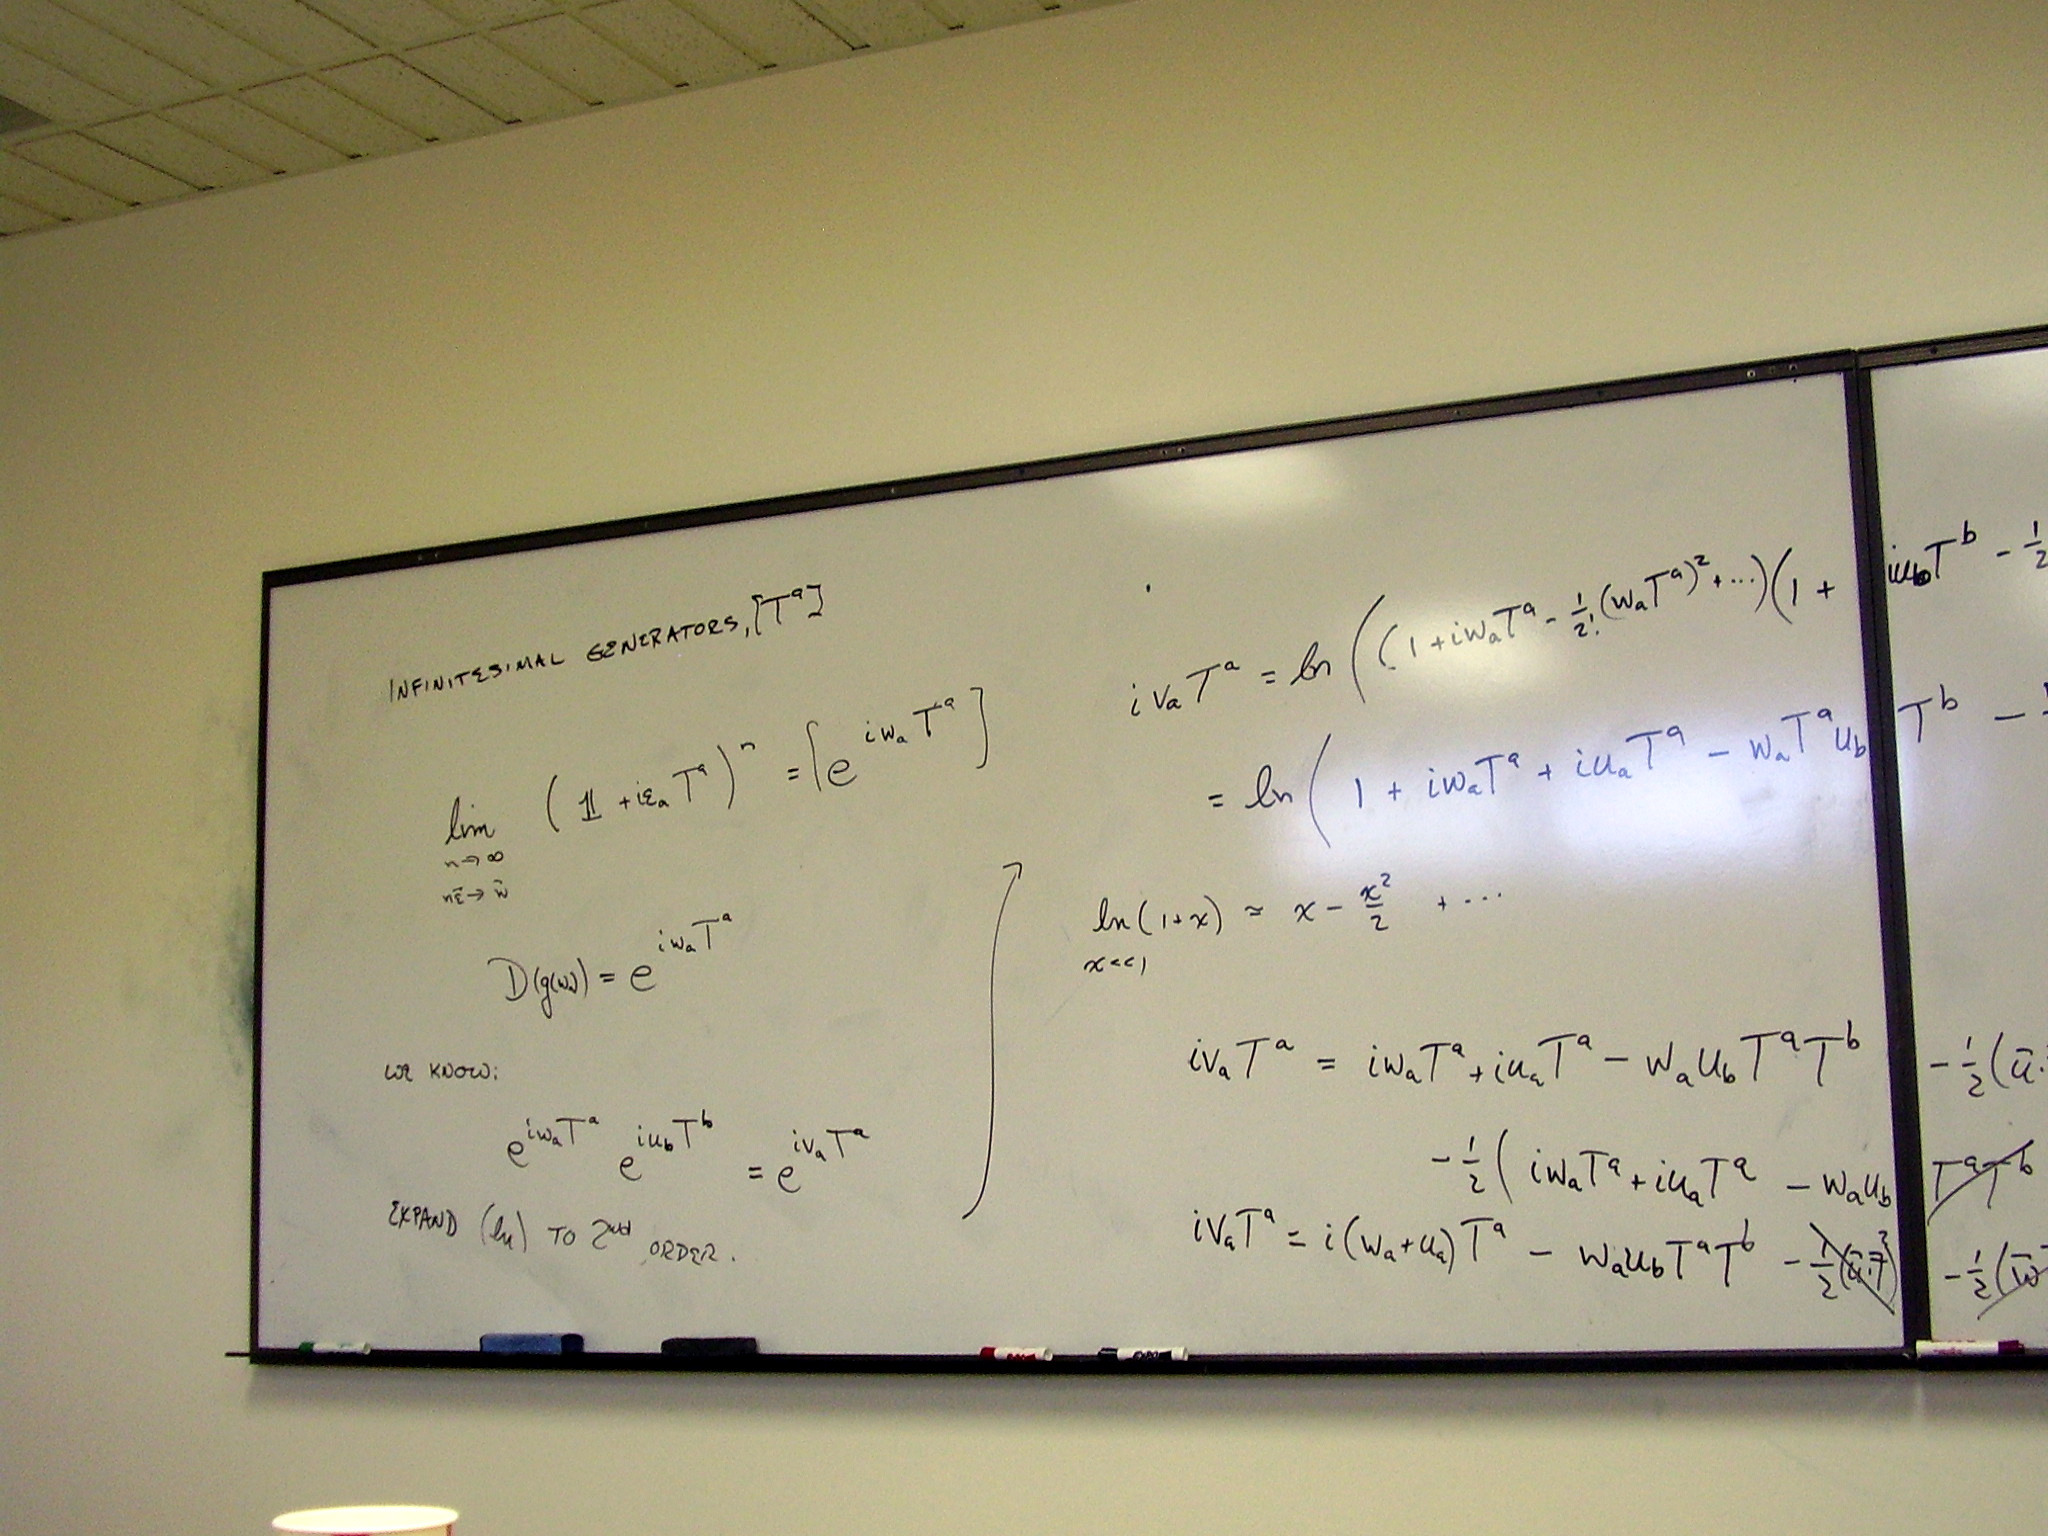 INFINITESIMAL GENERATORS, [Tᵃ]
lim (𝟙 + iεₐTᵃ)ⁿ = [e^{iwₐTᵃ}]
n→∞
nε̄→w̄
D(g(w)) = e^{iwₐTᵃ}
WE KNOW:
e^{iwₐTᵃ} e^{iu_bT^b} = e^{ivₐTᵃ}
EXPAND (ln) TO 2nd ORDER.
ivₐTᵃ = ln((1 + iwₐTᵃ - 1/2! (wₐTᵃ)² + ...)(1 + iu_bT^b - 1/2
= ln(1 + iwₐTᵃ + iuₐTᵃ - wₐTᵃu_bT^b -
ln(1+x) ≈ x - x²/2 + ...
x<<1
ivₐTᵃ = iwₐTᵃ + iuₐTᵃ - wₐu_bTᵃT^b - 1/2(ū·
- 1/2(iwₐTᵃ + iuₐTᵃ - wₐu_bTᵃT^b
ivₐTᵃ = i(wₐ+uₐ)Tᵃ - wₐu_bTᵃT^b - 1/2(ū·T̄)² - 1/2(w̄